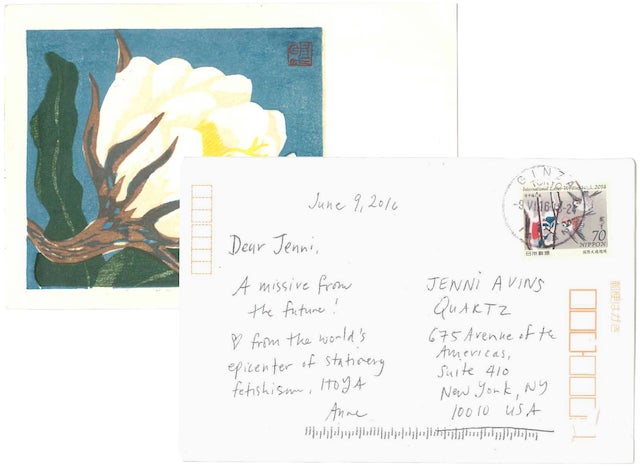 June 9, 2016
Dear Jenni,
A missive from
the future!
♡ from the world's
epicenter of stationery
fetishism, ITOYA
Anne
GINZA
70
NIPPON
日本郵便
JENNI AVINS
QUARTZ
675 Avenue of the
Americas,
Suite 410
New York, NY
10010 USA
郵便はがき